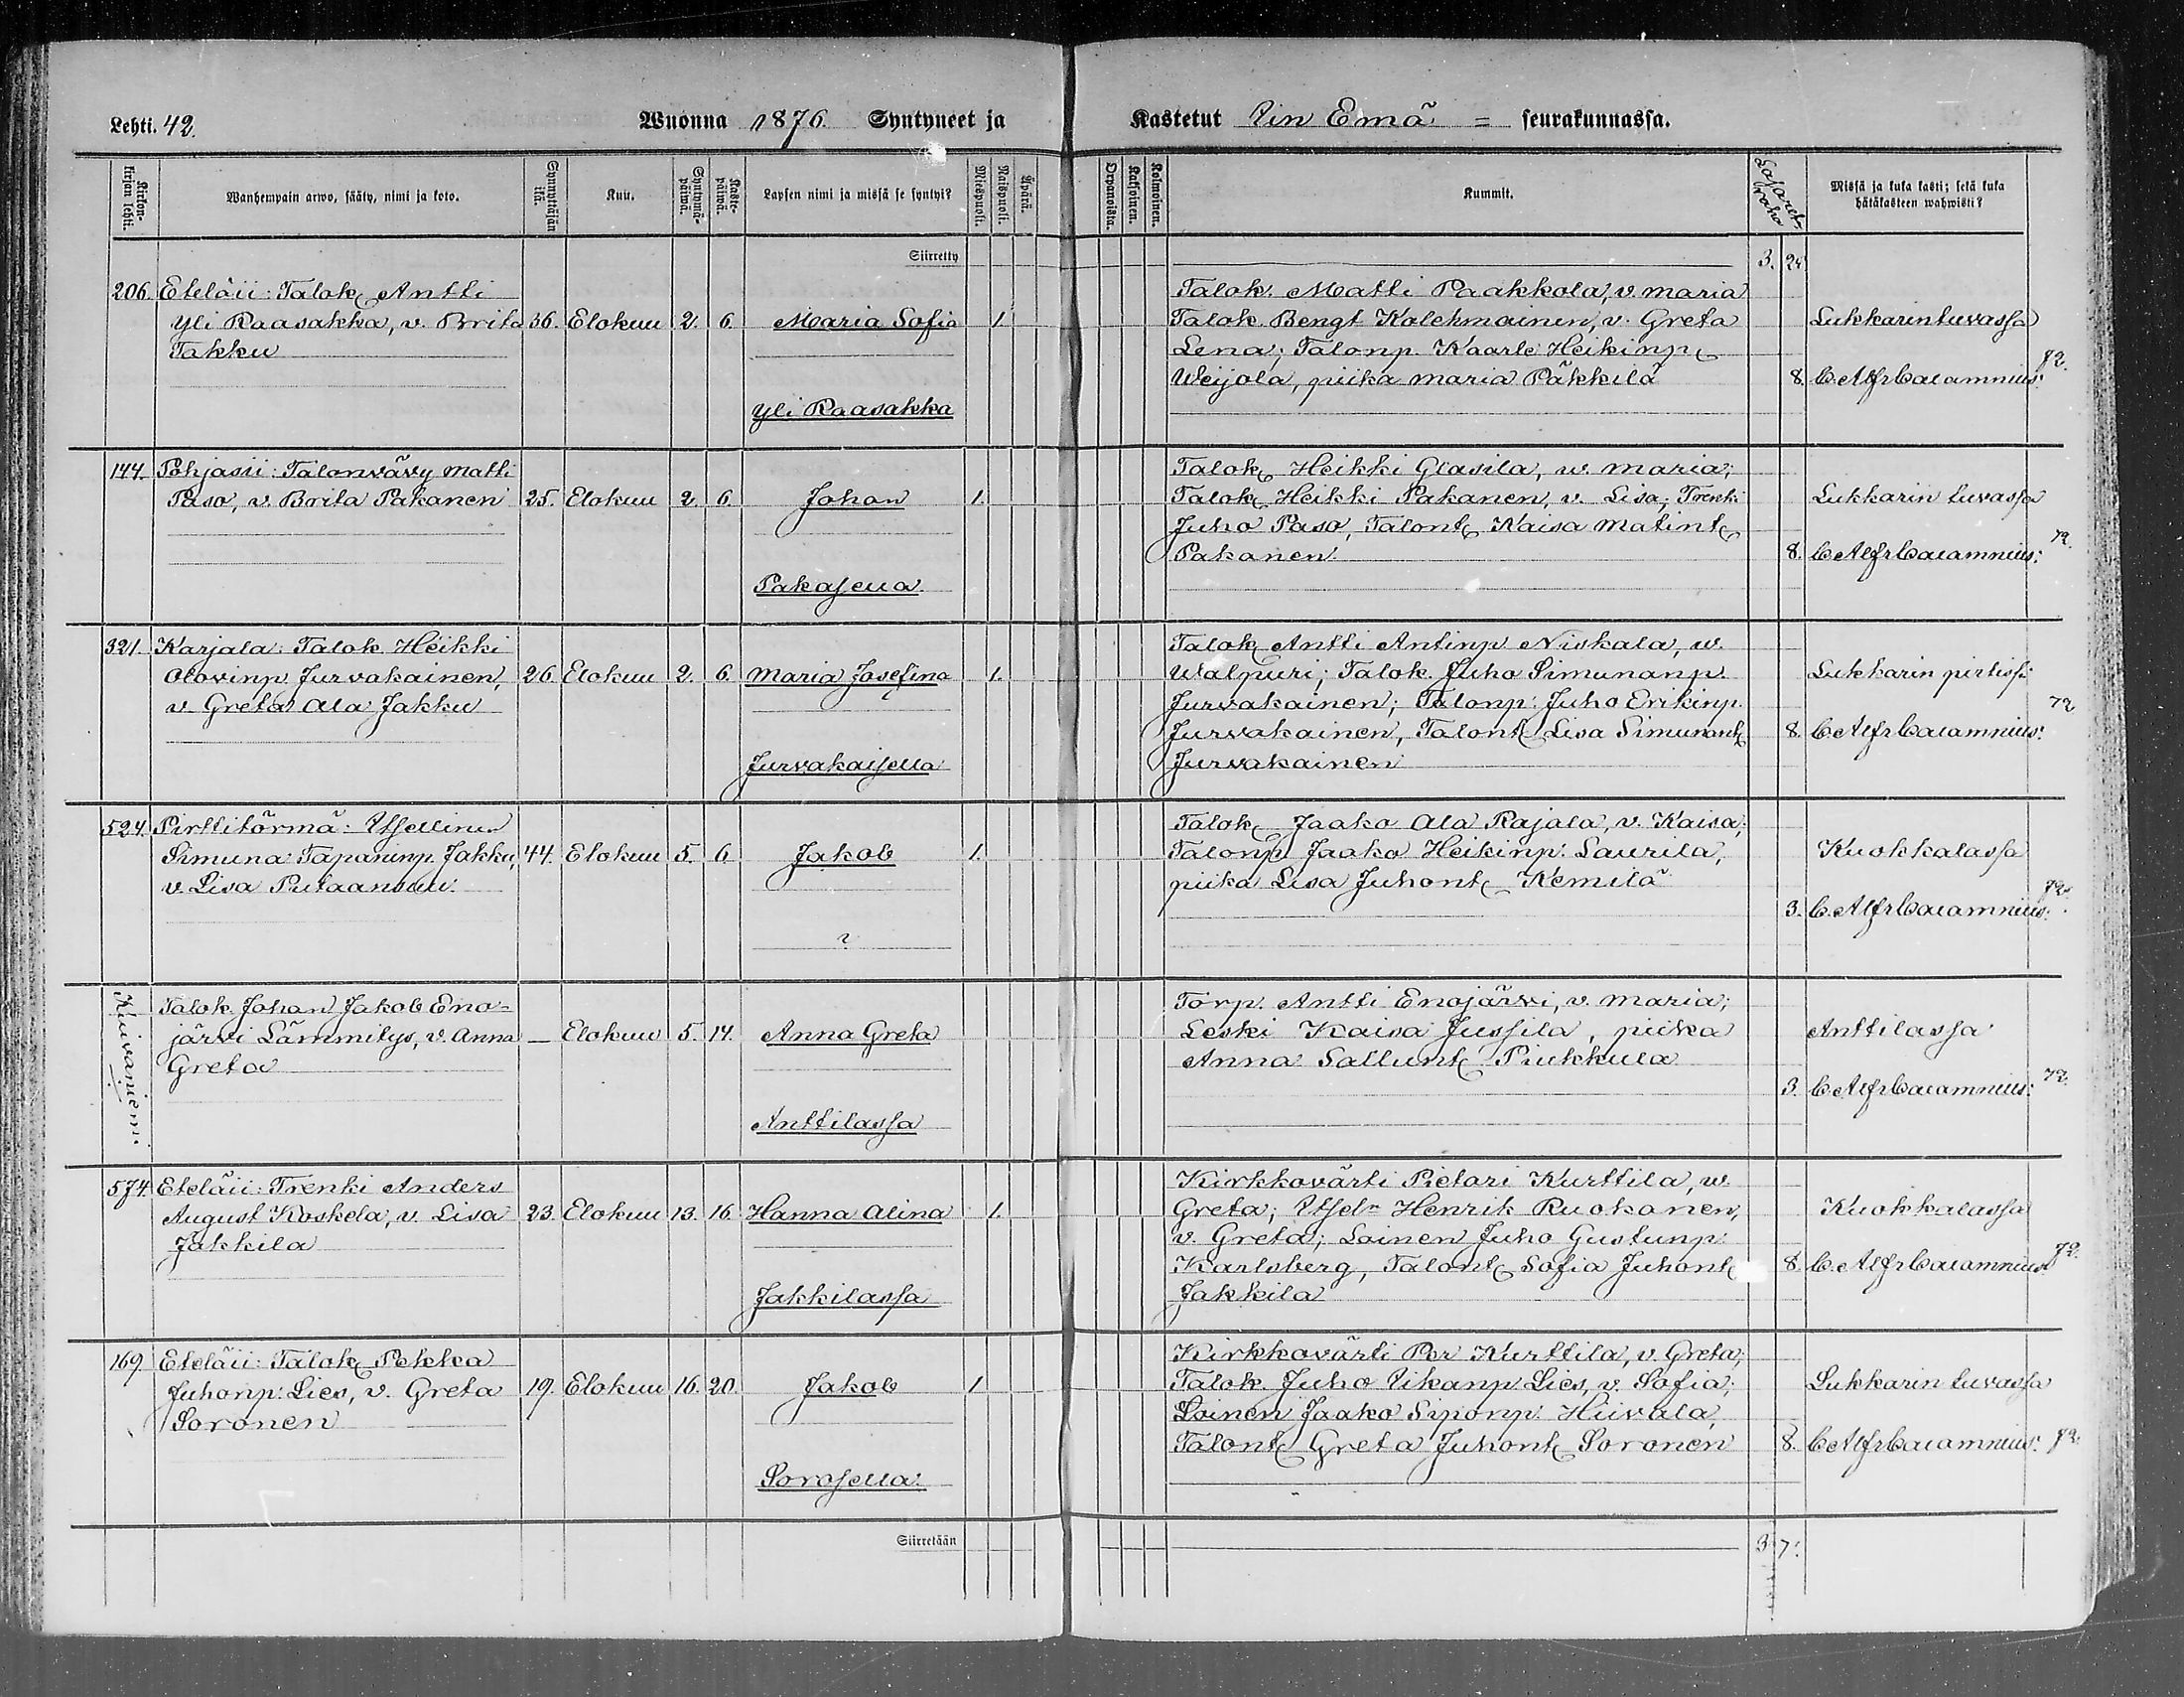 Lehti. 42.
Wuonna 1876 Syntyneet ja
Kastetut Iin Emä = seurakunnassa.
Kirkonkirjan lehti.
Wanhempain arwo, sääty, nimi ja koto.
Synnyttäjän ikä.
Kuu.
Syntymäpäiwä.
Kastepäiwä.
Lapsen nimi ja missä se syntyi?
Miespuoli.
Naispuoli.
Äpärä.
Orpanoista.
Kaksoinen.
Kolmoinen.
Kummit.
Lasaretraha
Missä ja kuka kasti; sekä kuka hätäkasteen wahwisti?
Siirretty 3. 24
206. Eteläii: Talok. Antti
Yli Raasakka, v. Brita 36. Elokuu 2. 6. Maria Sofia 1.
Takku
Yli Raasakka
Talok. Matti Paakkola, v. Maria
Talok. Bengt Kolehmainen, v. Greta
Lena; Talonp. Kaarle Heikinp.
Weijola, piika Maria Päkkilä
Lukkarin tuvassa
8. C. Alfr Cacamnius: 72.
144. Pohjasii: Talonvävy Matti
Paso, v. Brita Pakanen 25. Elokuu 2. 6. Johan 1.
Pakasella
Talok. Heikki Glasila, w. Maria;
Talok. Heikki Pakanen, v. Lisa; Trenki
Juho Paso, Talont. Kaisa Matint.
Pakanen.
Lukkarin tuvassa
8. C. Alfr Cacamnius: 72.
321. Karjala: Talok. Heikki
Olavinp Jurvakainen, 26. Elokuu 2. 6. Maria Josefina 1.
v. Greta Ala Jakku
Jurvakaisella
Talok. Antti Antinp Niskala, w.
Walpuri; Talok. Juho Simunanp.
Jurvakainen; Talonp: Juho Erikinp.
Jurvakainen, Talont. Lisa Simunant.
Jurvakainen
Lukkarin pirtissä
8. C. Alfr Cacamnius: 72
524. Pirttitörmä: Itsellinen
Simuna Tapaninp. Jakku, 44. Elokuu 5. 6 Jakob 1.
v. Lisa Putaansuu.
?
Talok. Jaako Ala Rajala, v. Kaisa;
Talonp. Jaako Heikinp. Laurila,
piika Lisa Juhont. Kemilä
Kuokkalassa
3. C. Alfr Cacamnius: 72.
Kuivaniemi.
Talok. Johan Jakob Eno-
järvi Lämmitys, v. Anna — Elokuu 5. 14. Anna Greta
Greta
Anttilassa
Torp. Antti Enojärvi, v. Maria;
Leski Kaisa Jussila, piika
Anna Sallunt. Piukkula
Anttilassa
3. C. Alfr Cacamnius: 72.
574. Eteläii: Trenki Anders
August Koskela, v. Lisa 23. Elokuu 13. 16. Hanna Alina 1.
Jakkila
Jakkilassa
Kirkkovärti Pietari Kurttila, w.
Greta; Itseln Henrik Ruokanen,
v. Greta; Loinen Juho Gustunp.
Karlsberg, Talont. Sofia Juhont.
Jakkila
Kuokkalassa
8. C. Alfr Cacamnius 72.
169. Eteläii: Talok. Pekka
Juhonp: Lies, v. Greta 19. Elokuu 16. 20. Jakob 1
Soronen
Sorosella.
Kirkkovärti Per Kurttila, v. Greta;
Talok. Juho Iikanp Lies, v. Sofia;
Loinen Jaako Siponp. Hiivala,
Talont. Greta Juhont. Soronen
Lukkarin tuvassa
8. C. Alfr Cacamnius: 72.
Siirretään 3. 7.